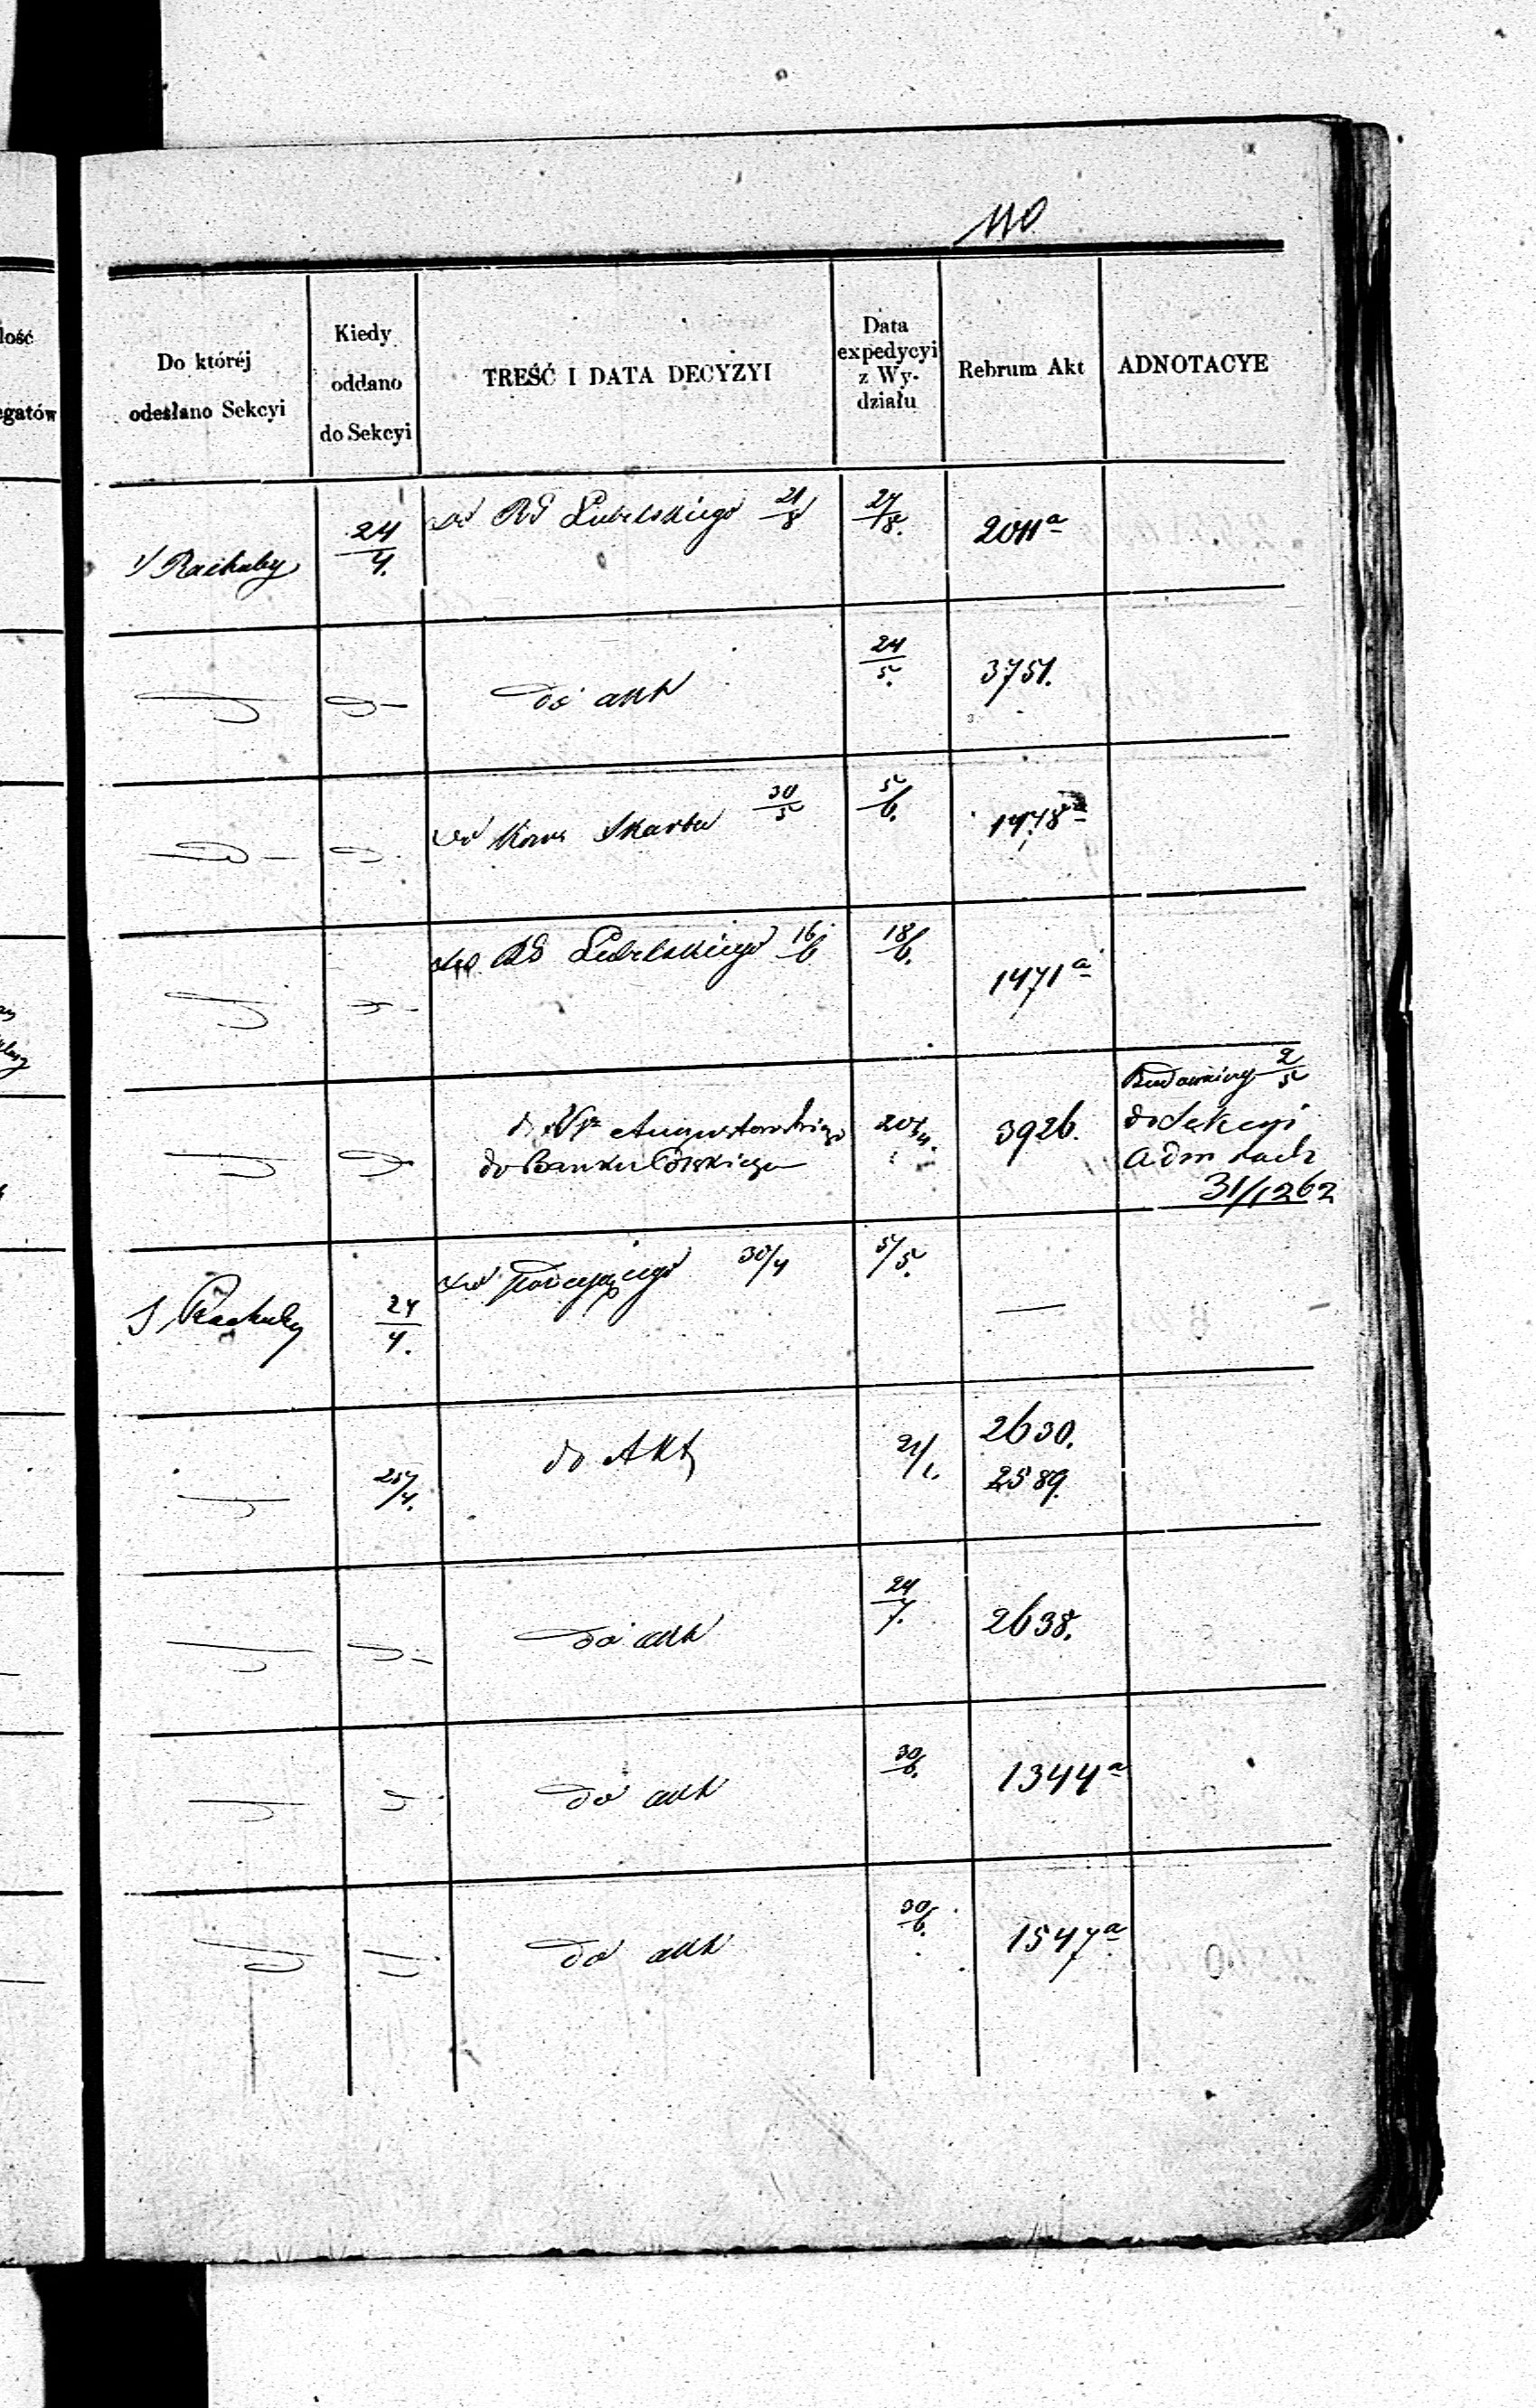 110
Do któréj
odesłano Sekcyi
Kiedy
oddano
do Sekcyi
TREŚĆ I DATA DECYZYI
Data
expedycyi
z Wy-
działu
Rebrum Akt
ADNOTACYE
łość
egatów
Rachuby
24/4.
do RG Lubelskiego 21/8
27/8.
2011a
do akt
24/5.
3751.
do Kom Skarbu 30/5
5/6.
1478a
do RG Lubelskiego 16/6
18/6.
1471a
Augustowskiego
do Banku Polskiego
3926.
Budowniczy 2/5
do Sekcyi
Adm
31/1262
S Rachuby
24/4.
do 30/4
5/5.
—
25/4.
do Akt
2630.
2589.
do akt
24/7.
2638.
do akt
30/6.
1344a
do akt
30/6.
1547a